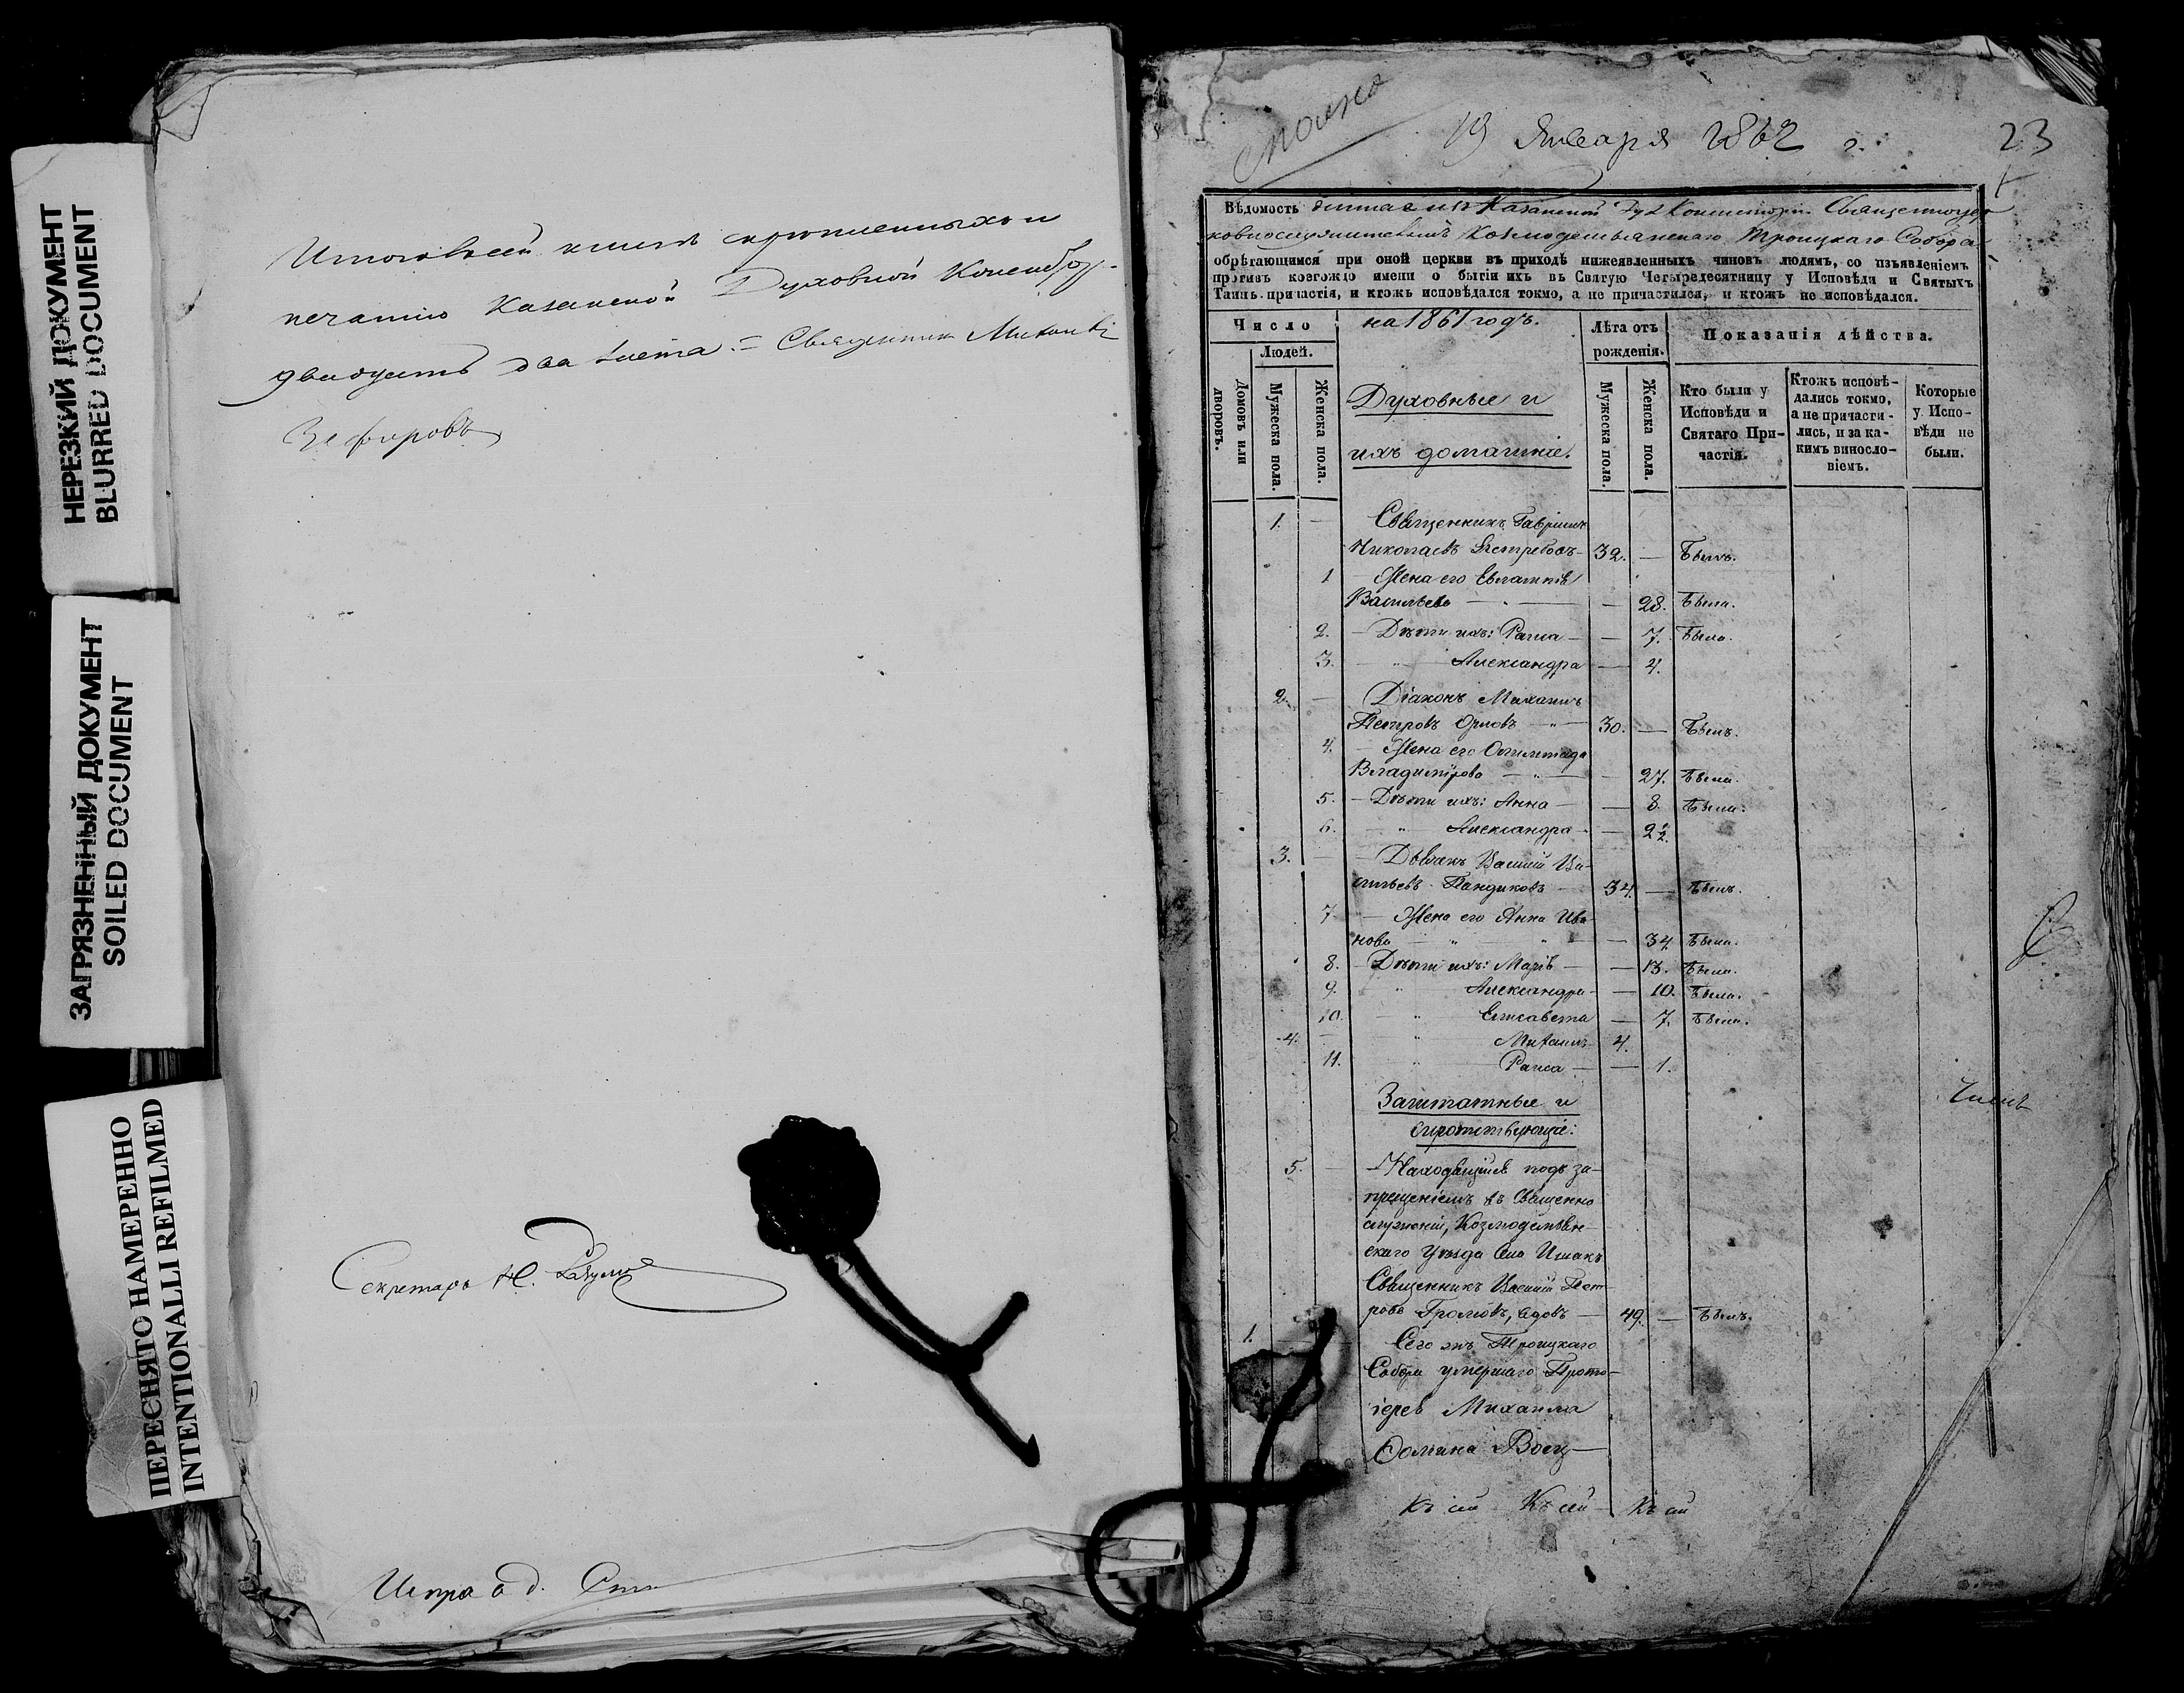 НЕРЕЗКИЙ ДОКУМЕНТ
BLURRED DOCUMENT
ЗАГРЯЗНЕННЫЙ ДОКУМЕНТ
SOILED DOCUMENT
ПЕРЕСНЯТО НАМЕРЕННО
INTENTIONALLI REFILMED
книгѣ
печатью Казанской Духовной
двадцать два листа = Священникъ
Зефировъ
Секретарь
19 Января 1862 г.
23
Вѣдомость Казанской Дух Консисторіи
Козмодемьянскаго Троицкаго Собора
обрѣтающимся при оной церкви въ приходѣ нижеявленныхъ чиновъ людямъ, со изъявленіемъ
противъ коегождо имени о бытіи ихъ въ Святую Четыредесятницу у Исповѣди и Святыхъ
Таинъ причастія, и ктожъ исповѣдался токмо, а не причастился, и ктожъ не исповѣдался.
Число
Людей.
Домовъ или дворовъ.
Мужеска пола.
Женска пола.
на 1861 годъ.
Духовные и
ихъ домашніе.
Лѣта отъ
рожденія.
Мужеска пола.
Женска пола.
Показанія дѣйства.
Кто были у
Исповѣди и
Святаго При-
частія.
Ктожъ исповѣ-
дались токмо,
а не причасти-
лись, и за ка-
кимъ винословіемъ.
Которые
у Испо-
вѣди не
были.
1. — Священникъ Гавріилъ
Николаевъ Ястребовъ — 32. — Былъ.
1 — Жена его Евлампія
Васильева — — 28. Была.
2. — Дѣти ихъ: Раиса — — 7. Была.
3. — " Александра — 4.
2. — Діаконъ Михаилъ
Петровъ Орловъ — " — 30. — Былъ.
4. — Жена его Олимпіада
Владимірова — " — — 27. Была.
5. — Дѣти ихъ: Анна — — 8. Была.
6. — " Александра — — 2
3. — Дьячекъ Василій Ва-
сильевъ Пандиковъ — 34. — Былъ.
7 — Жена его Анна Ива-
нова — " — " — — 34 Была.
8. — Дѣти ихъ: Марія — — 13. Была.
9. " Александра — — 10. Была.
10. — " Елисавета — 7. Была.
4. — " Михаилъ 4.
11. " Раиса — — 1.
Заштатные и
сиротствующіе:
5. — Находящійся подъ за-
прещеніемъ въ Священно
служеніи, Козмодемьян-
скаго уѣзда Села
Священникъ Василій Пет-
ровъ Громовъ, вдовъ — 49. — Былъ.
1. Сего жъ Троицкаго
Собора умершаго Прото-
іерея Михаила